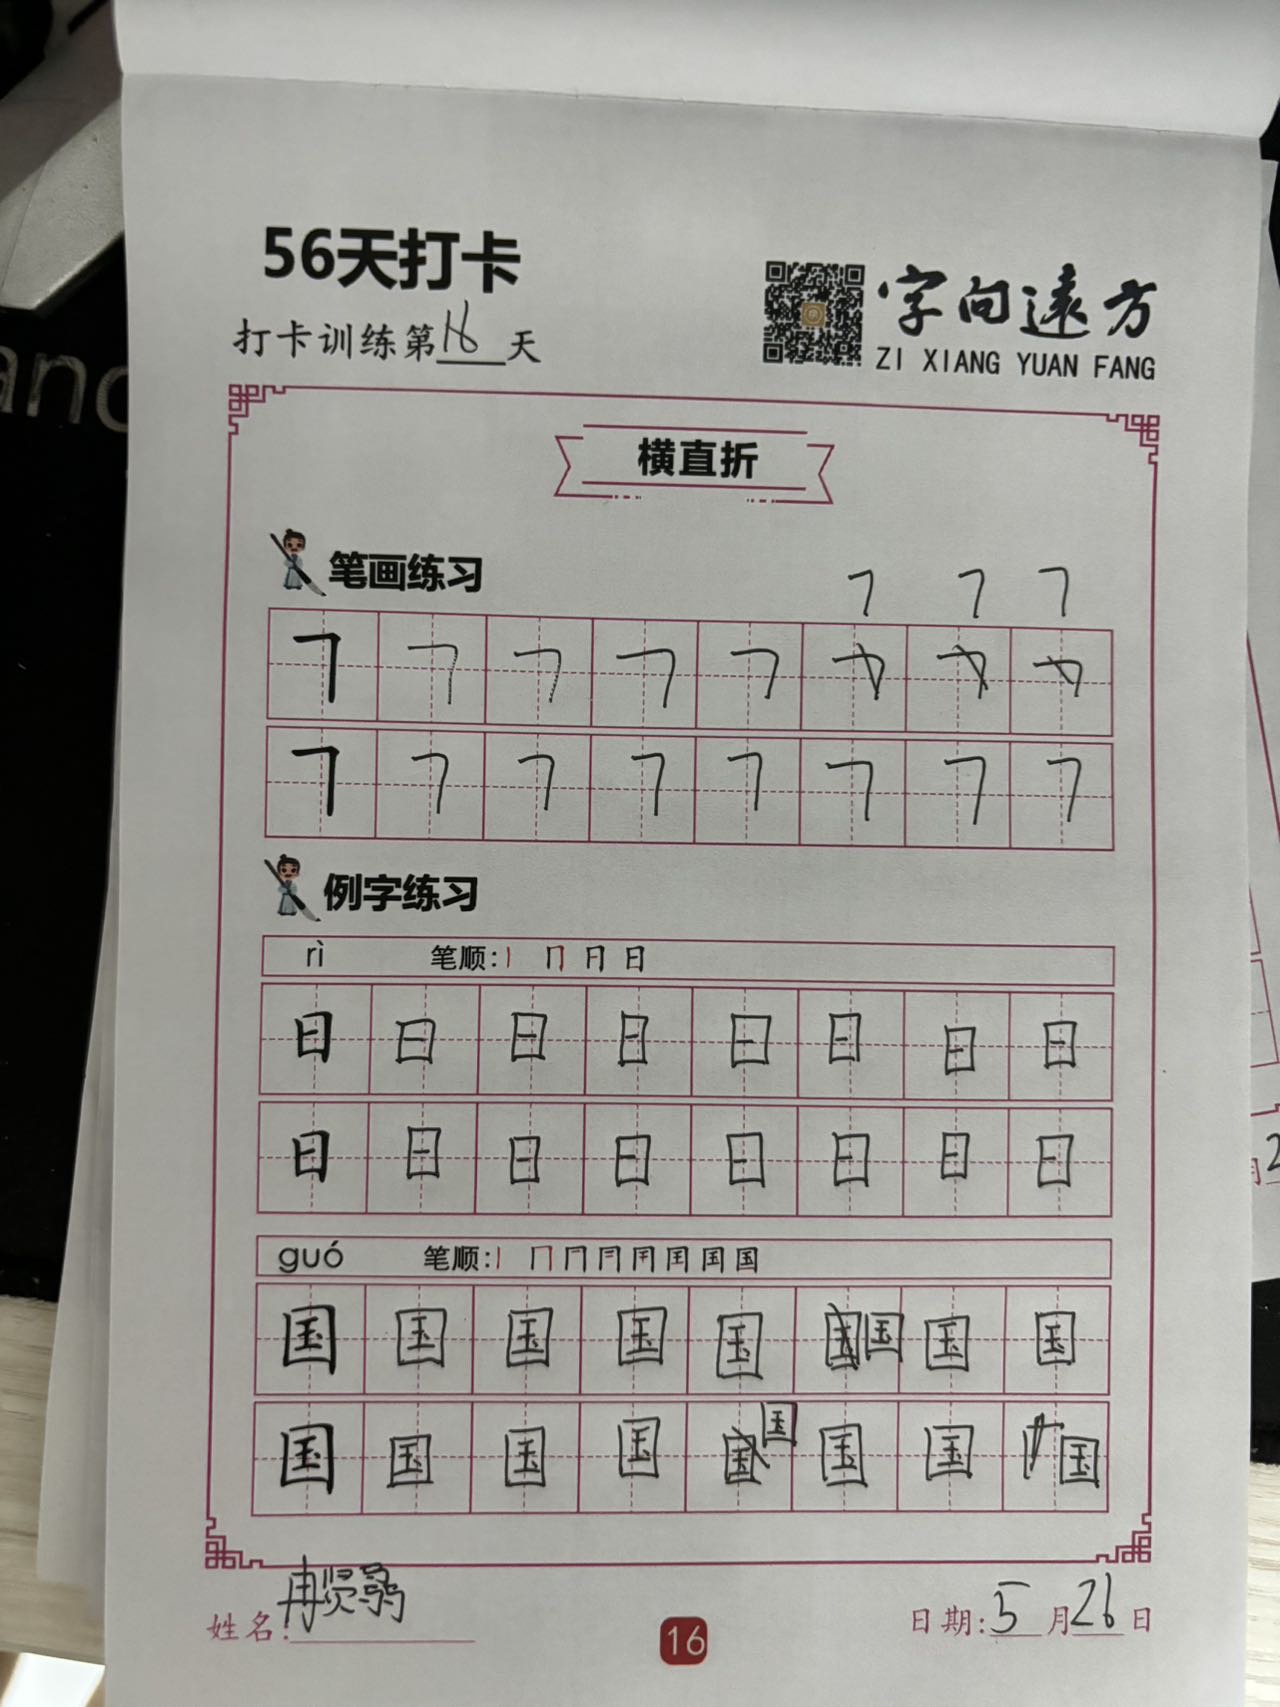 56天打卡
打卡训练第16天
字向遠方
ZI XIANG YUAN FANG
横直折
笔画练习
例字练习
rì 笔顺:丨 冂 日 日
日 日 日 日 日 日 日 日
日 日 日 日 日 日 日 日
guó 笔顺:
国 国 国 国 国 国 国 国
国 国 国 国 国 国 国 国 国
姓名: 日期:5月26日
16